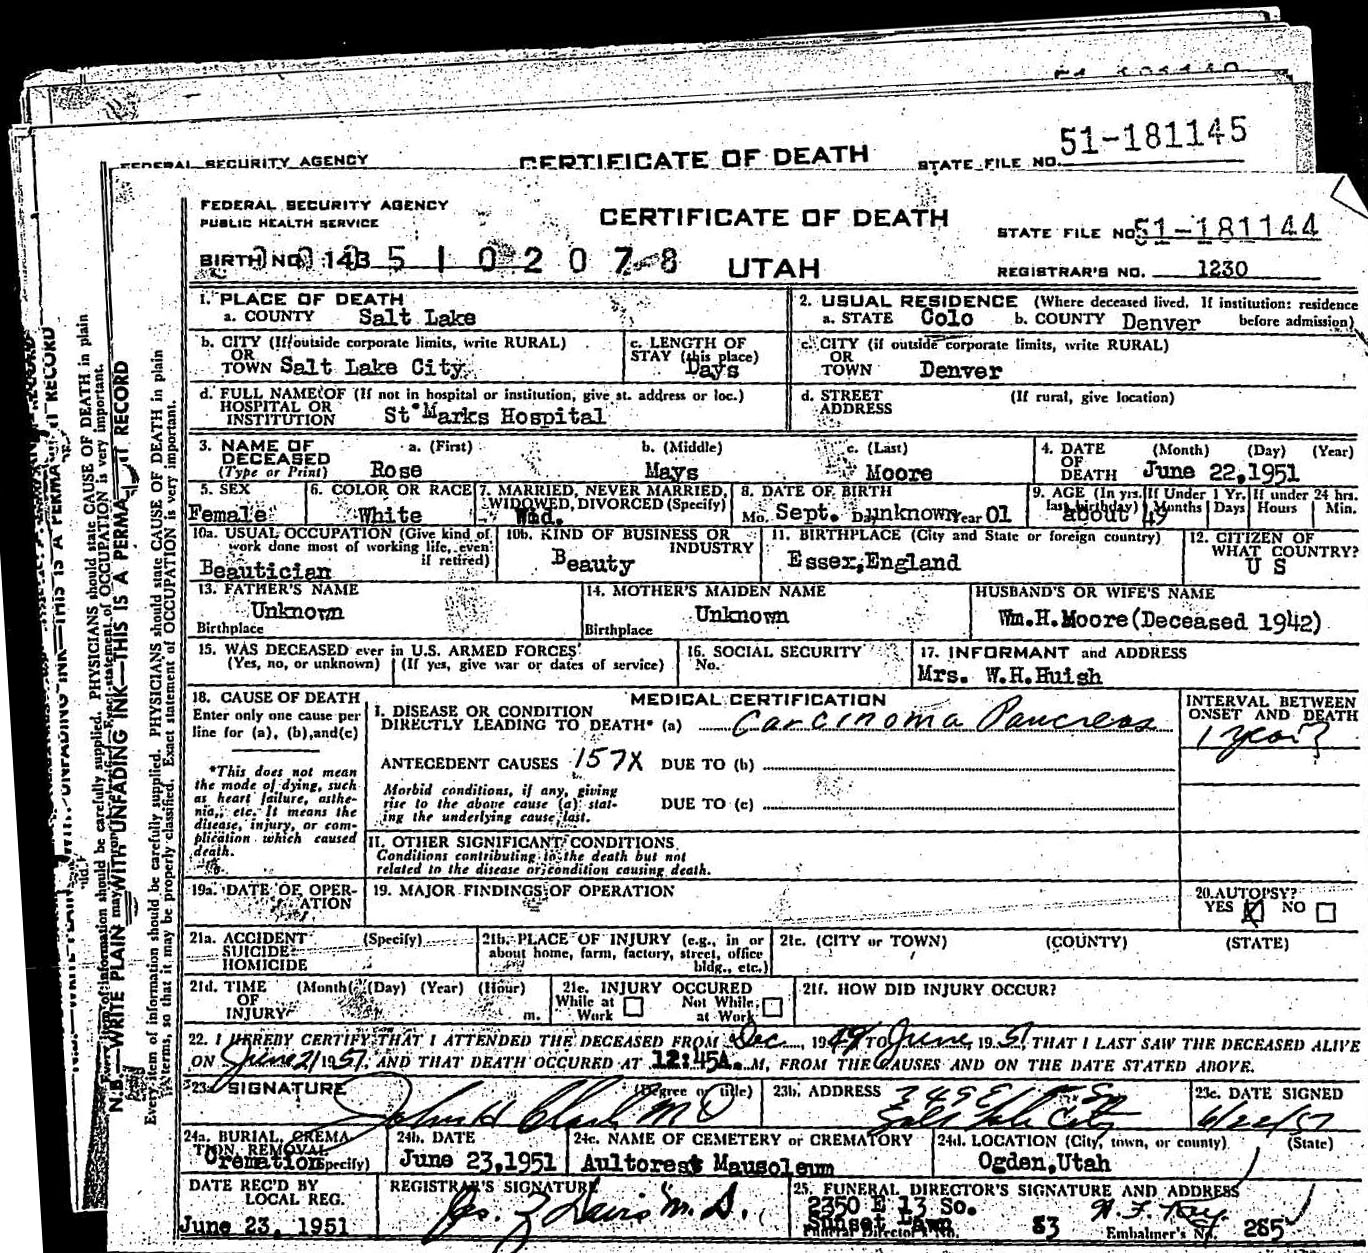 51-181145
FEDERAL SECURITY AGENCY CERTIFICATE OF DEATH STATE FILE NO.
FEDERAL SECURITY AGENCY
PUBLIC HEALTH SERVICE
CERTIFICATE OF DEATH
STATE FILE NO. 51-181144
BIRTH NO. 143 5 1 0 2 0 7 8 UTAH REGISTRAR'S NO. 1230
1. PLACE OF DEATH
a. COUNTY Salt Lake
2. USUAL RESIDENCE (Where deceased lived. If institution: residence
a. STATE Colo b. COUNTY Denver before admission)
b. CITY (If outside corporate limits, write RURAL)
OR
TOWN Salt Lake City
c. LENGTH OF
STAY (this place)
Days
c. CITY (if outside corporate limits, write RURAL)
OR
TOWN Denver
d. FULL NAME OF (If not in hospital or institution, give st. address or loc.)
HOSPITAL OR
INSTITUTION St Marks Hospital
d. STREET (If rural, give location)
ADDRESS
3. NAME OF a. (First) b. (Middle) c. (Last)
DECEASED
(Type or Print) Rose Mays Moore
4. DATE (Month) (Day) (Year)
OF
DEATH June 22,1951
5. SEX
Female
6. COLOR OR RACE
White
7. MARRIED, NEVER MARRIED,
WIDOWED, DIVORCED (Specify)
Wid.
8. DATE OF BIRTH
Mo. Sept. Day unknown Year 01
9. AGE (In yrs. If Under 1 Yr. If under 24 hrs.
last birthday) Months Days Hours Min.
about 49
10a. USUAL OCCUPATION (Give kind of
work done most of working life, even
if retired)
Beautician
10b. KIND OF BUSINESS OR
INDUSTRY
Beauty
11. BIRTHPLACE (City and State or foreign country)
Essex,England
12. CITIZEN OF
WHAT COUNTRY?
U S
13. FATHER'S NAME
Unknown
Birthplace
14. MOTHER'S MAIDEN NAME
Unknown
Birthplace
HUSBAND'S OR WIFE'S NAME
Wm.H.Moore(Deceased 1942)
15. WAS DECEASED ever in U.S. ARMED FORCES?
(Yes, no, or unknown) (If yes, give war or dates of service)
16. SOCIAL SECURITY
No.
17. INFORMANT and ADDRESS
Mrs. W.H.Huish
18. CAUSE OF DEATH
Enter only one cause per
line for (a), (b),and(c)
*This does not mean
the mode of dying, such
as heart failure, asthe-
nia, etc. It means the
disease, injury, or com-
plication which caused
death.
MEDICAL CERTIFICATION
I. DISEASE OR CONDITION
DIRECTLY LEADING TO DEATH* (a) Carcinoma Pancreas
ANTECEDENT CAUSES 157X DUE TO (b)
Morbid conditions, if any, giving
rise to the above cause (a) stat-
ing the underlying cause last.
DUE TO (c)
INTERVAL BETWEEN
ONSET AND DEATH
1 year
II. OTHER SIGNIFICANT CONDITIONS
Conditions contributing to the death but not
related to the disease or condition causing death.
19a. DATE OF OPER-
ATION
19. MAJOR FINDINGS OF OPERATION
20. AUTOPSY?
YES NO
21a. ACCIDENT (Specify)
SUICIDE
HOMICIDE
21b. PLACE OF INJURY (e.g., in or
about home, farm, factory, street, office
bldg., etc.)
21c. (CITY or TOWN) (COUNTY) (STATE)
21d. TIME (Month) (Day) (Year) (Hour)
OF
INJURY m.
21e. INJURY OCCURED
While at Not While
Work at Work
21f. HOW DID INJURY OCCUR?
22. I HEREBY CERTIFY THAT I ATTENDED THE DECEASED FROM Dec, 1949 TO June, 1951 THAT I LAST SAW THE DECEASED ALIVE
ON June 21 1951, AND THAT DEATH OCCURED AT 12:45A.M, FROM THE CAUSES AND ON THE DATE STATED ABOVE.
23a SIGNATURE (Degree or title)
John H Clark MD
23b. ADDRESS
Salt Lake City
23c. DATE SIGNED
6/22/51
24a. BURIAL, CREMA-
TION, REMOVAL
Cremation (Specify)
24b. DATE
June 23,1951
24c. NAME OF CEMETERY or CREMATORY
Aultorest Mausoleum
24d. LOCATION (City, town, or county) (State)
Ogden,Utah
DATE REC'D BY
LOCAL REG.
June 23, 1951
REGISTRAR'S SIGNATURE
Davis M.D.
25. FUNERAL DIRECTOR'S SIGNATURE AND ADDRESS
2350 E 13 So.
Sunset Lawn
Funeral Director's No. 83 Embalmer's No. 265
N.B.—WRITE PLAINLY WITH UNFADING INK—THIS IS A PERMANENT RECORD
Every item of information should be carefully supplied. PHYSICIANS should state CAUSE OF DEATH in plain
terms, so that it may be properly classified. Exact statement of OCCUPATION is very important.